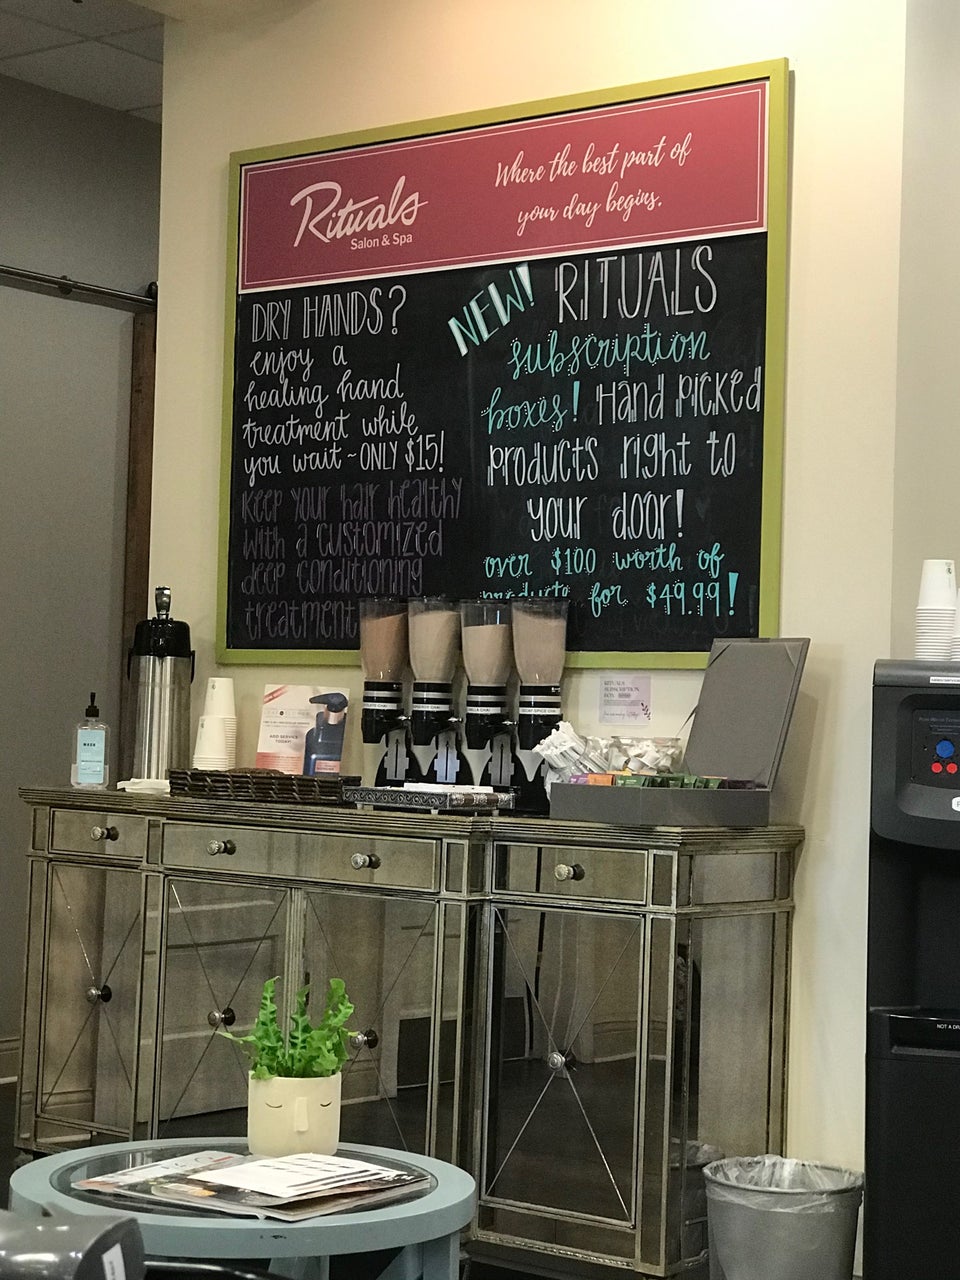 Rituals
Salon & Spa
Where the best part of
your day begins.
DRY HANDS?
enjoy a
healing hand
treatment while
you wait ~ ONLY $15!
Keep your hair healthy
with a customized
deep conditioning
treatment
NEW! RITUALS
subscription
boxes! Hand picked
products right to
your door!
over $100 worth of
products for $49.99!
WASH
ADD SERVICE
TODAY!
RITUALS
SUBSCRIPTION
BOX
NOT A DR